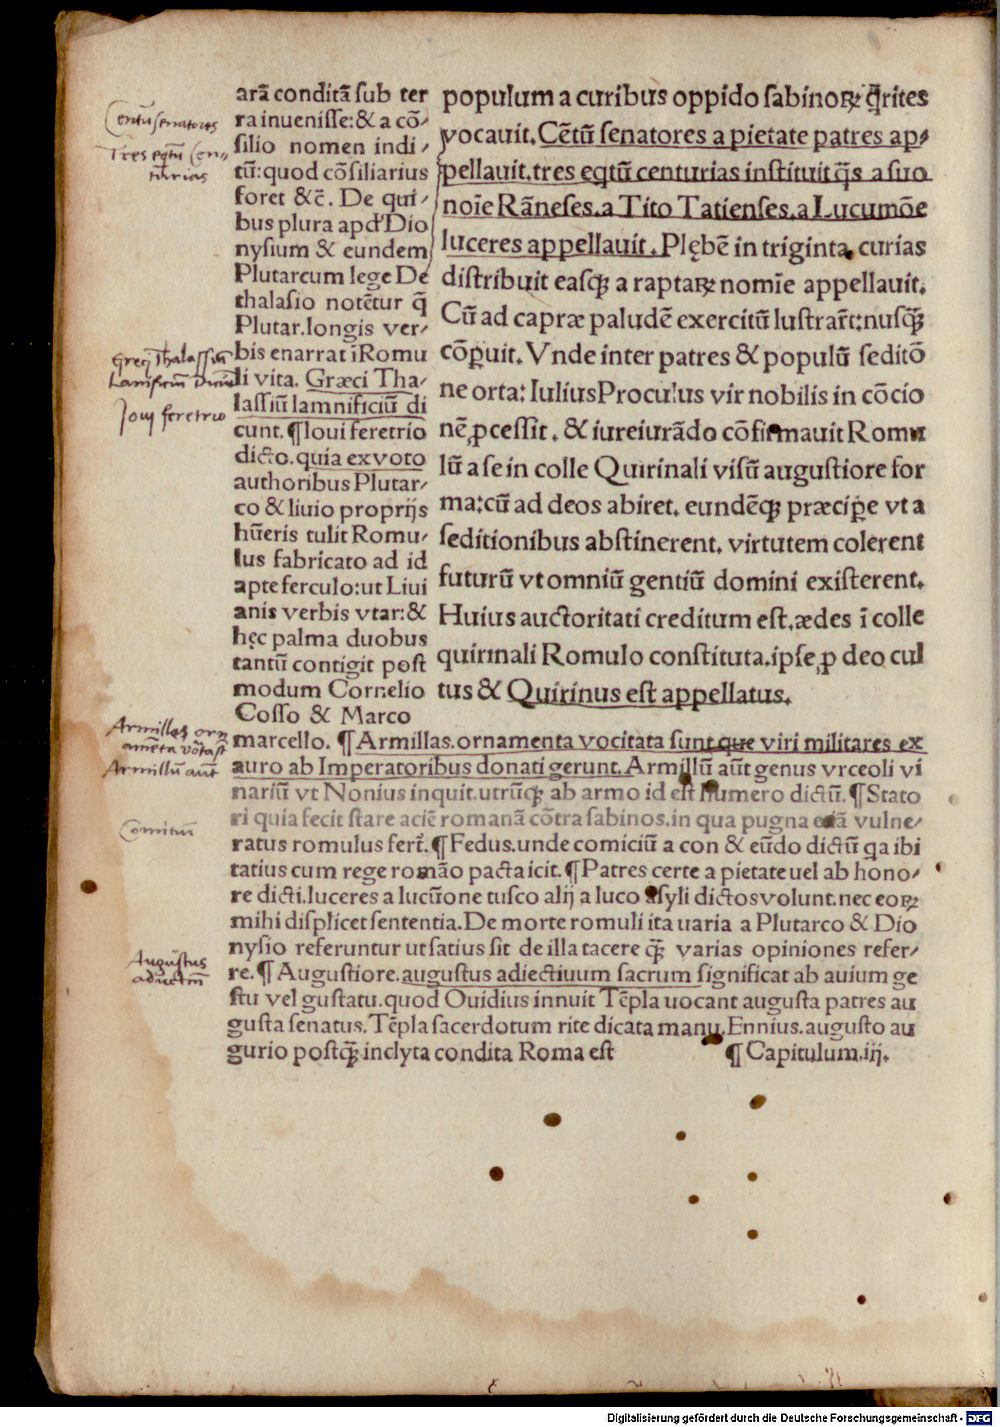 arā conditā sub ter
ra inuenisse: & a cō-
silio nomen indi-
tū: quod cōsiliarius
foret &c̄. De qui-
bus plura apđ Dio
nysium & eundem
Plutarcum lege De
thalasio notētur q̄
Plutar. longis ver-
bis enarrat ī Romu
li vita. Græci Tha-
lassiū lamnificiū di
cunt. ¶ Ioui feretrio
dicto. quia ex voto
authoribus Plutar-
co & liuio proprijs
hūeris tulit Romu-
lus fabricato ad id
apte ferculo: ut Liui
anis verbis vtar: &
hęc palma duobus
tantū contigit post
modum Cornelio
Cosso & Marco
populum a curibus oppido sabinoꝝ q̄rites
vocauit. Cētū senatores a pietate patres ap-
pellauit. tres eqtū centurias instituit q̄s a suo
noīe Rāneses. a Tito Tatienses. a Lucumōe
luceres appellauit. Plębē in triginta curias
distribuit easqȝ a raptaꝝ nomīe appellauit.
Cū ad capræ paludē exercitū lustrar̄t: nusqȝ̄
cōꝑuit. Vnde inter patres & populū seditō
ne orta: Iulius Proculus vir nobilis in cōcio
nē ꝓcessit. & iureiurādo cōfirmauit Romu
lū a se in colle Quirinali visū augustiore for
ma: cū ad deos abiret. eundēqȝ præcipe vt a
seditionibus abstinerent. virtutem colerent
futurū vt omniū gentiū domini existerent.
Huius auctoritati creditum est. ædes ī colle
quirinali Romulo constituta. ipse ꝓ deo cul
tus & Quirinus est appellatus.
marcello. ¶ Armillas. ornamenta vocitata sunt que viri militares ex
auro ab Imperatoribus donati gerunt. Armillū aūt genus vrceoli vi
narium vt Nonius inquit. utrūqȝ ab armo id est humero dictū. ¶ Stato
ri quia fecit stare aciē romanā cōtra sabinos. in qua pugna etiā vulne-
ratus romulus fert̄. ¶ Fedus. unde comiciū a con & eūdo dictū qa ibi
tatius cum rege romāo pacta icit. ¶ Patres certe a pietate uel ab hono-
re dicti. luceres a lucūone tusco alij a luco asyli dictos volunt. nec eoꝝ
mihi displicet sententia. De morte romuli ita uaria a Plutarco & Dio
nysio referuntur ut satius sit de illa tacere qȝ̄ varias opiniones refer-
re. ¶ Augustiore. augustus adiectiuum sacrum significat ab auium ge
stu vel gustatu. quod Ouidius innuit Tēpla uocant augusta patres au
gusta senatus. Tēpla sacerdotum rite dicata manu. Ennius. augusto au
gurio postqȝ̄ inclyta condita Roma est ¶ Capitulum. iij.
Centū senatores
Tres eqtū Cen-
turias
Greci Thalassiū
Lanificiū Dicūt
Ioui feretrio
Armillas orn
amēta vocitāt
Armillū aūt
Comitiū
Augustus
adiectiuū
Digitalisierung gefördert durch die Deutsche Forschungsgemeinschaft - DFG